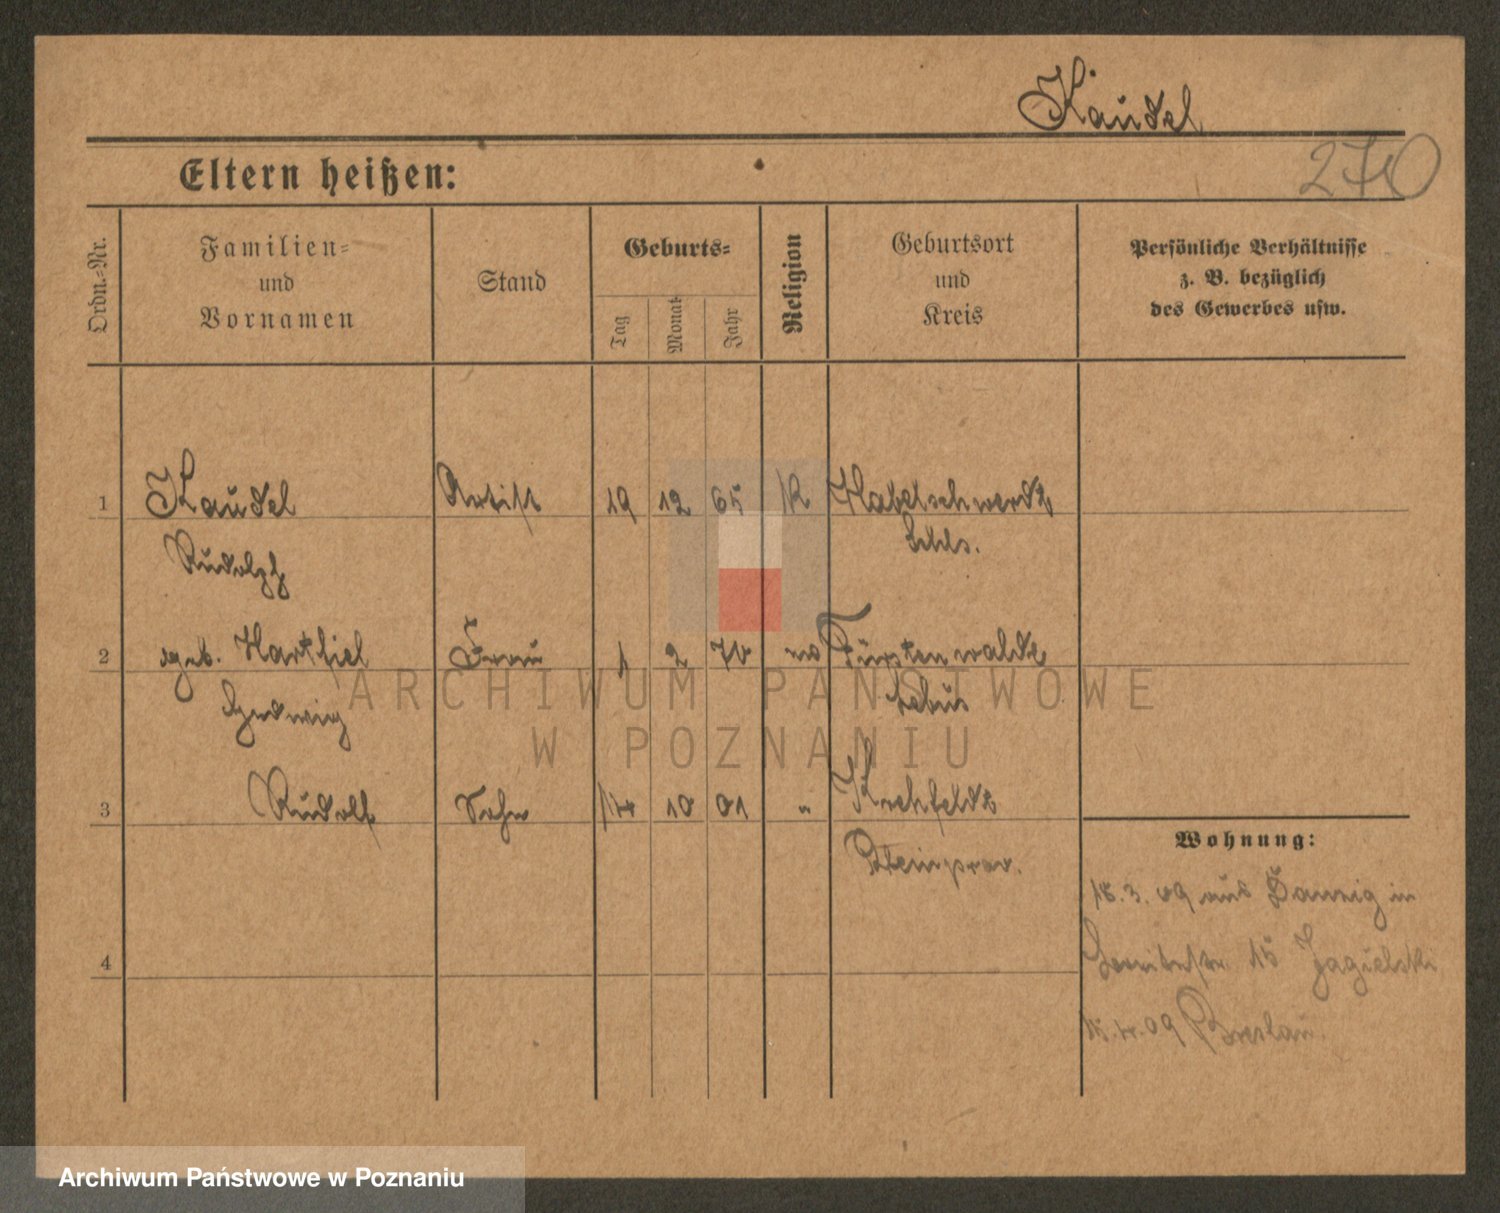 Kaudel
270
Eltern heißen:
Ordn.-Nr.
Familien-
und
Vornamen
Stand
Geburts-
Tag
Monat
Jahr
Religion
Geburtsort
und
Kreis
Persönliche Verhältnisse
z. B. bezüglich
des Gewerbes usw.
1 Kaudel Artist 19 12 65 k Habelschwerdt
Rudolph Schls.
2 geb. Hartfiel Frau 1 2 70 Fürstenwalde
Hedwig Lebus
3 Rudolf Sohn 14 10 01 "
Rheinprov.
Wohnung:
18.3.09 aus Danzig in
15 Jagielski
15.4.09 Breslau.
4
ARCHIWUM PAŃSTWOWE
W POZNANIU
Archiwum Państwowe w Poznaniu